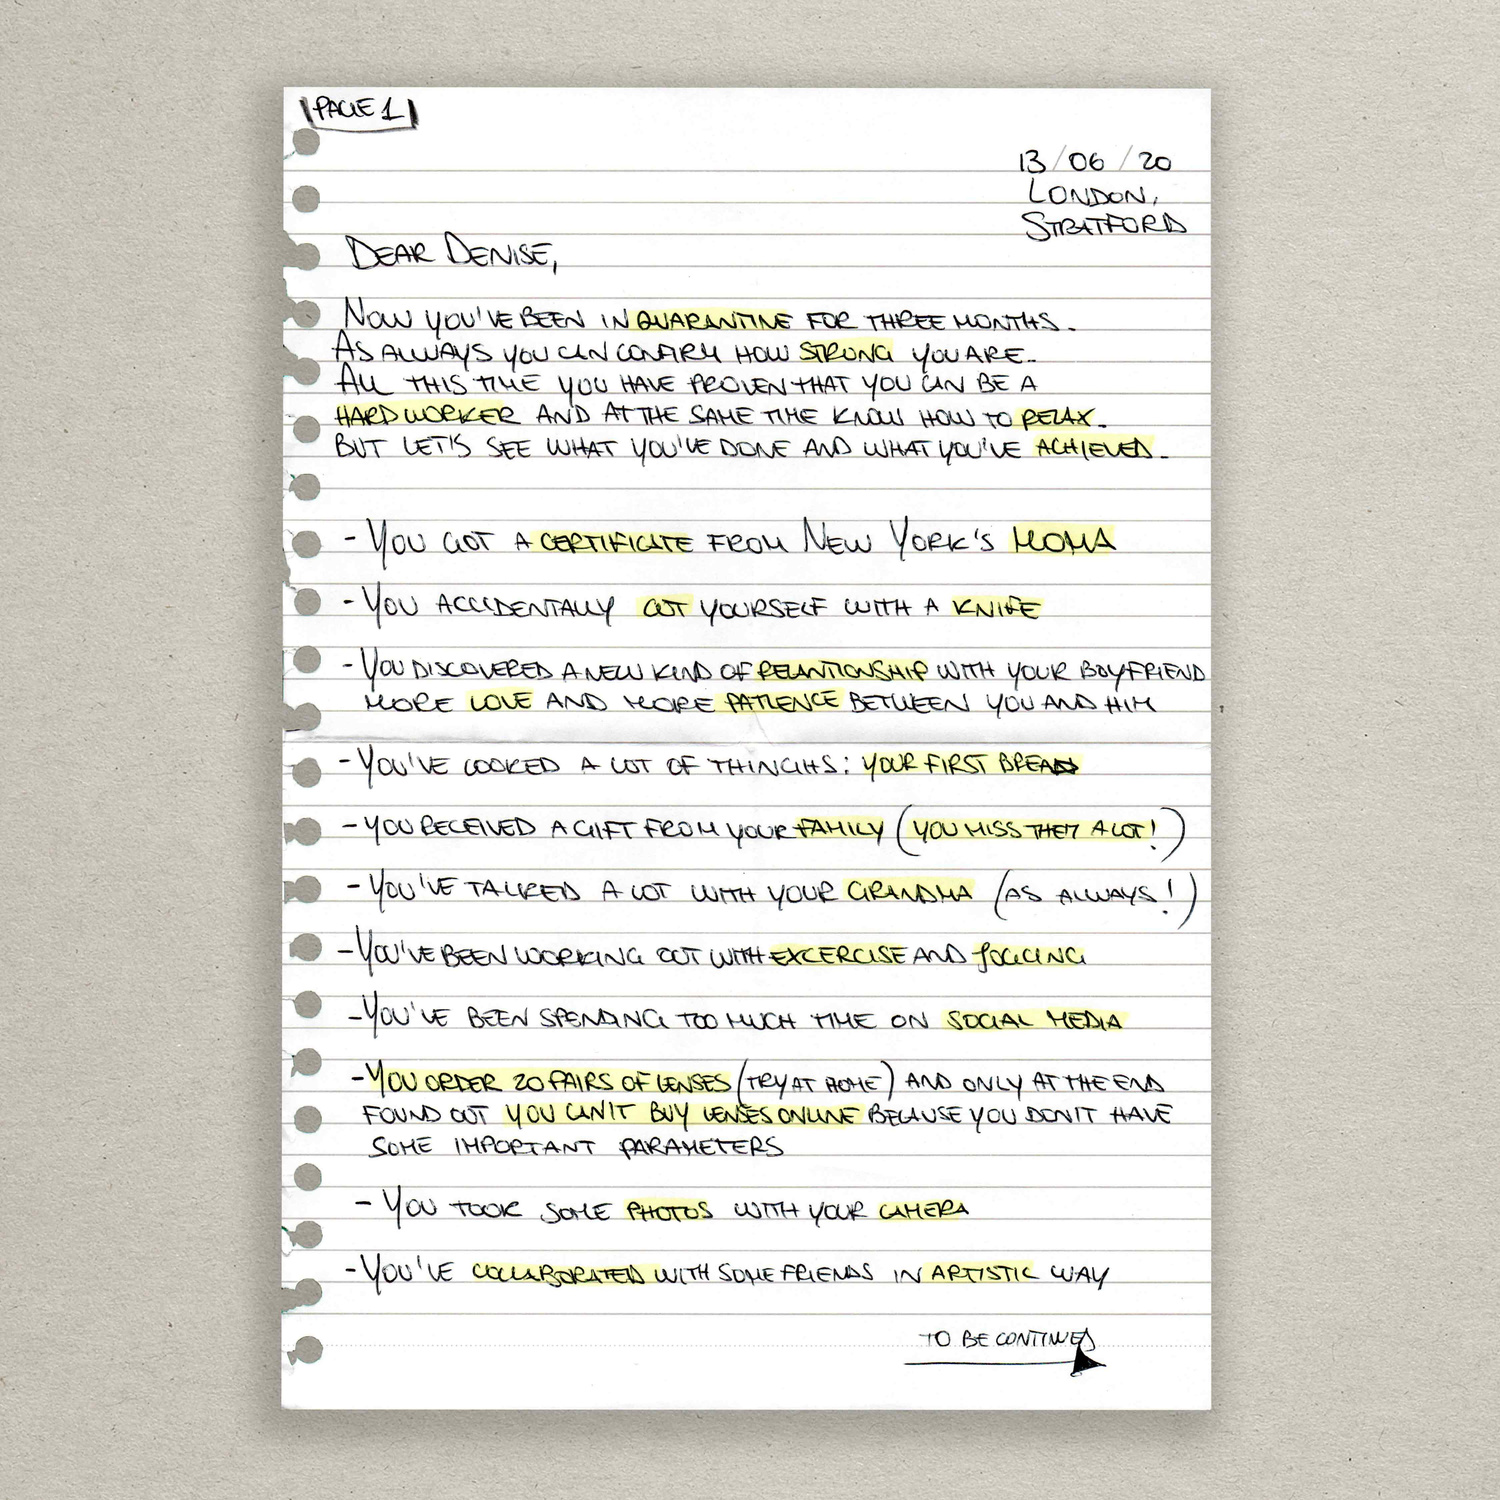 PAGE 1
13/06/20
LONDON,
STRATFORD
DEAR DENISE,
NOW YOU'VE BEEN IN QUARANTINE FOR THREE MONTHS.
AS ALWAYS YOU CAN CONFIRM HOW STRONG YOU ARE.
ALL THIS TIME YOU HAVE PROVEN THAT YOU CAN BE A
HARD WORKER AND AT THE SAME TIME KNOW HOW TO RELAX.
BUT LET'S SEE WHAT YOU'VE DONE AND WHAT YOU'VE ACHIEVED.
- YOU GOT A CERTIFICATE FROM NEW YORK'S MOMA
- YOU ACCIDENTALLY CUT YOURSELF WITH A KNIFE
- YOU DISCOVERED A NEW KIND OF RELANTIONSHIP WITH YOUR BOYFRIEND
MORE LOVE AND MORE PATIENCE BETWEEN YOU AND HIM
- YOU'VE COOKED A LOT OF THINGHS: YOUR FIRST BREAD
- YOU RECEIVED A GIFT FROM YOUR FAMILY (YOU MISS THEM A LOT!)
- YOU'VE TALKED A LOT WITH YOUR GRANDMA (AS ALWAYS!)
- YOU'VE BEEN WORKING OUT WITH EXCERCISE AND JOGGING
- YOU'VE BEEN SPENDING TOO MUCH TIME ON SOCIAL MEDIA
- YOU ORDER 20 PAIRS OF LENSES (TRY AT HOME) AND ONLY AT THE END
FOUND OUT YOU CAN'T BUY LENSES ONLINE BECAUSE YOU DON'T HAVE
SOME IMPORTANT PARAMETERS
- YOU TOOK SOME PHOTOS WITH YOUR CAMERA
- YOU'VE COLLABORATED WITH SOME FRIENDS IN ARTISTIC WAY
TO BE CONTINUED